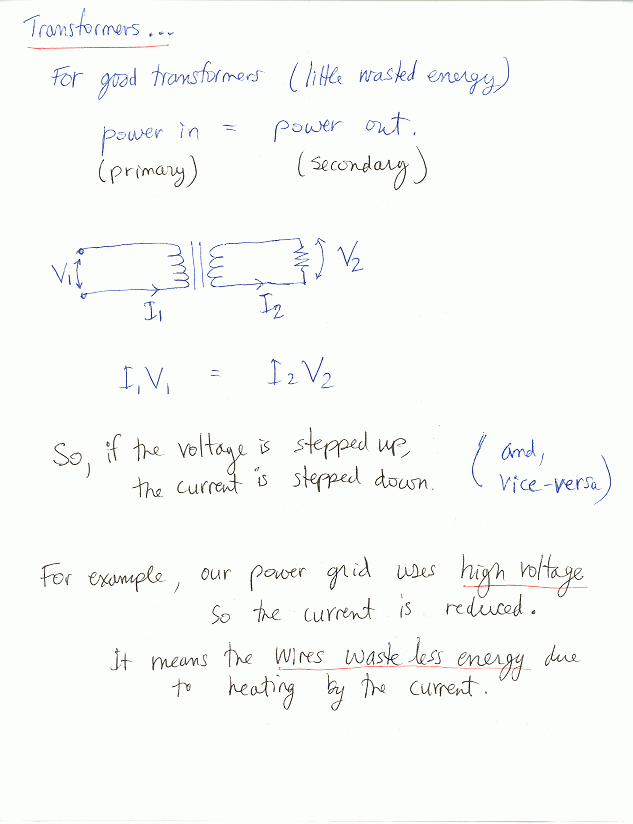 Transformers...
For good transformers (little wasted energy)
power in = power out.
(primary) (secondary)
V1 V2
I1 I2
I1V1 = I2V2
So, if the voltage is stepped up, (and,
the current is stepped down. vice-versa)
For example, our power grid uses high voltage
so the current is reduced.
It means the wires waste less energy due
to heating by the current.